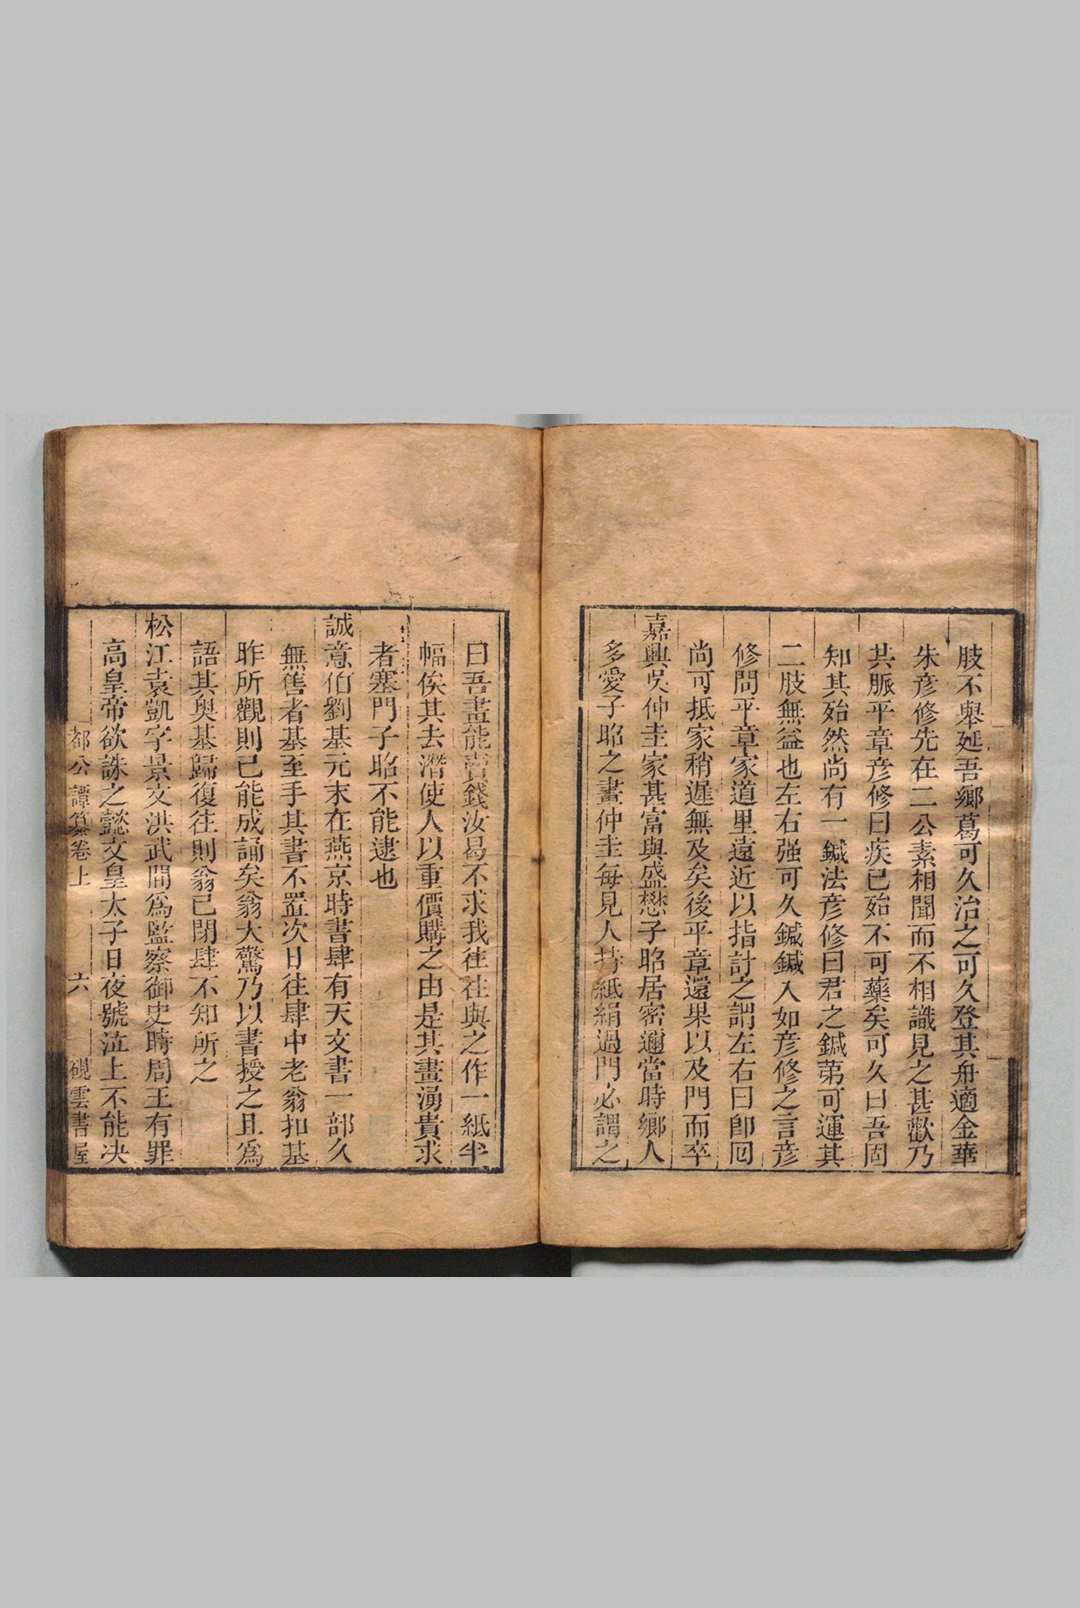 肢不舉延吾鄉葛可久治之可久登其舟適金華
朱彥修先在二公素相聞而不相識見之甚歡乃
共脈平章彥修曰疾已殆不可藥矣可久曰吾固
知其殆然尚有一鍼法彥修曰君之鍼苐可運其
二肢無益也左右强可久鍼鍼入如彥修之言彥
修問平章家道里遠近以指計之謂左右曰卽回
尚可抵家稍遲無及矣後平章還果以及門而卒
嘉興吳仲圭家甚富與盛懋子昭居密邇當時鄉人
多愛子昭之畫仲圭每見人持紙絹過門必謂之
曰吾畫能賣錢汝曷不求我往往與之作一紙半
幅俟其去潛使人以重價購之由是其畫湧貴求
者塞門子昭不能逮也
誠意伯劉基元末在燕京時書肆有天文書一部久
無售者基至手其書不置次日往肆中老翁扣基
昨所觀則已能成誦矣翁大驚乃以書授之且爲
語其奧基歸復往則翁已閉肆不知所之
松江袁凱字景文洪武間爲監察御史時周王有罪
高皇帝欲誅之懿文皇太子日夜號泣上不能决
都公譚纂卷上 六 硯雲書屋